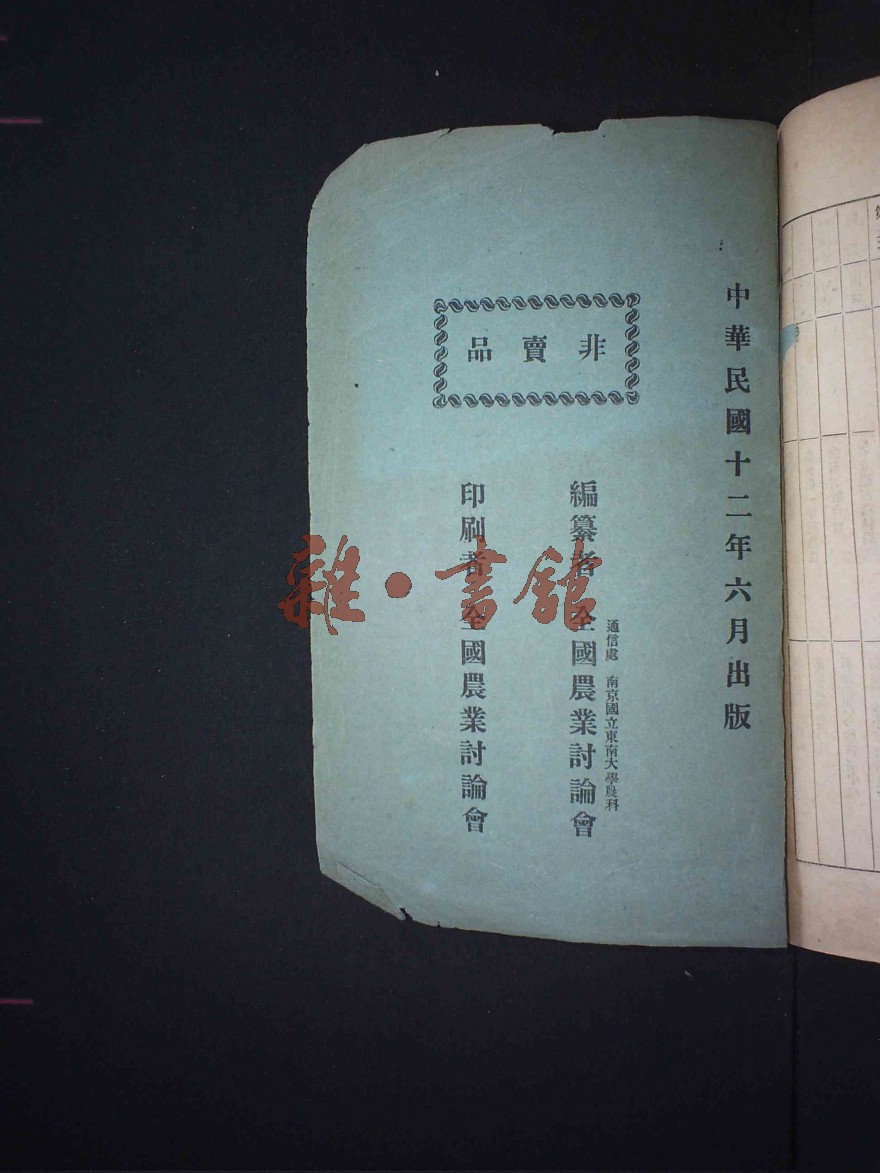 中華民國十二年六月出版
非賣品
通信處 南京國立東南大學農科
編纂者 全國農業討論會
印刷者 全國農業討論會
雜·書館